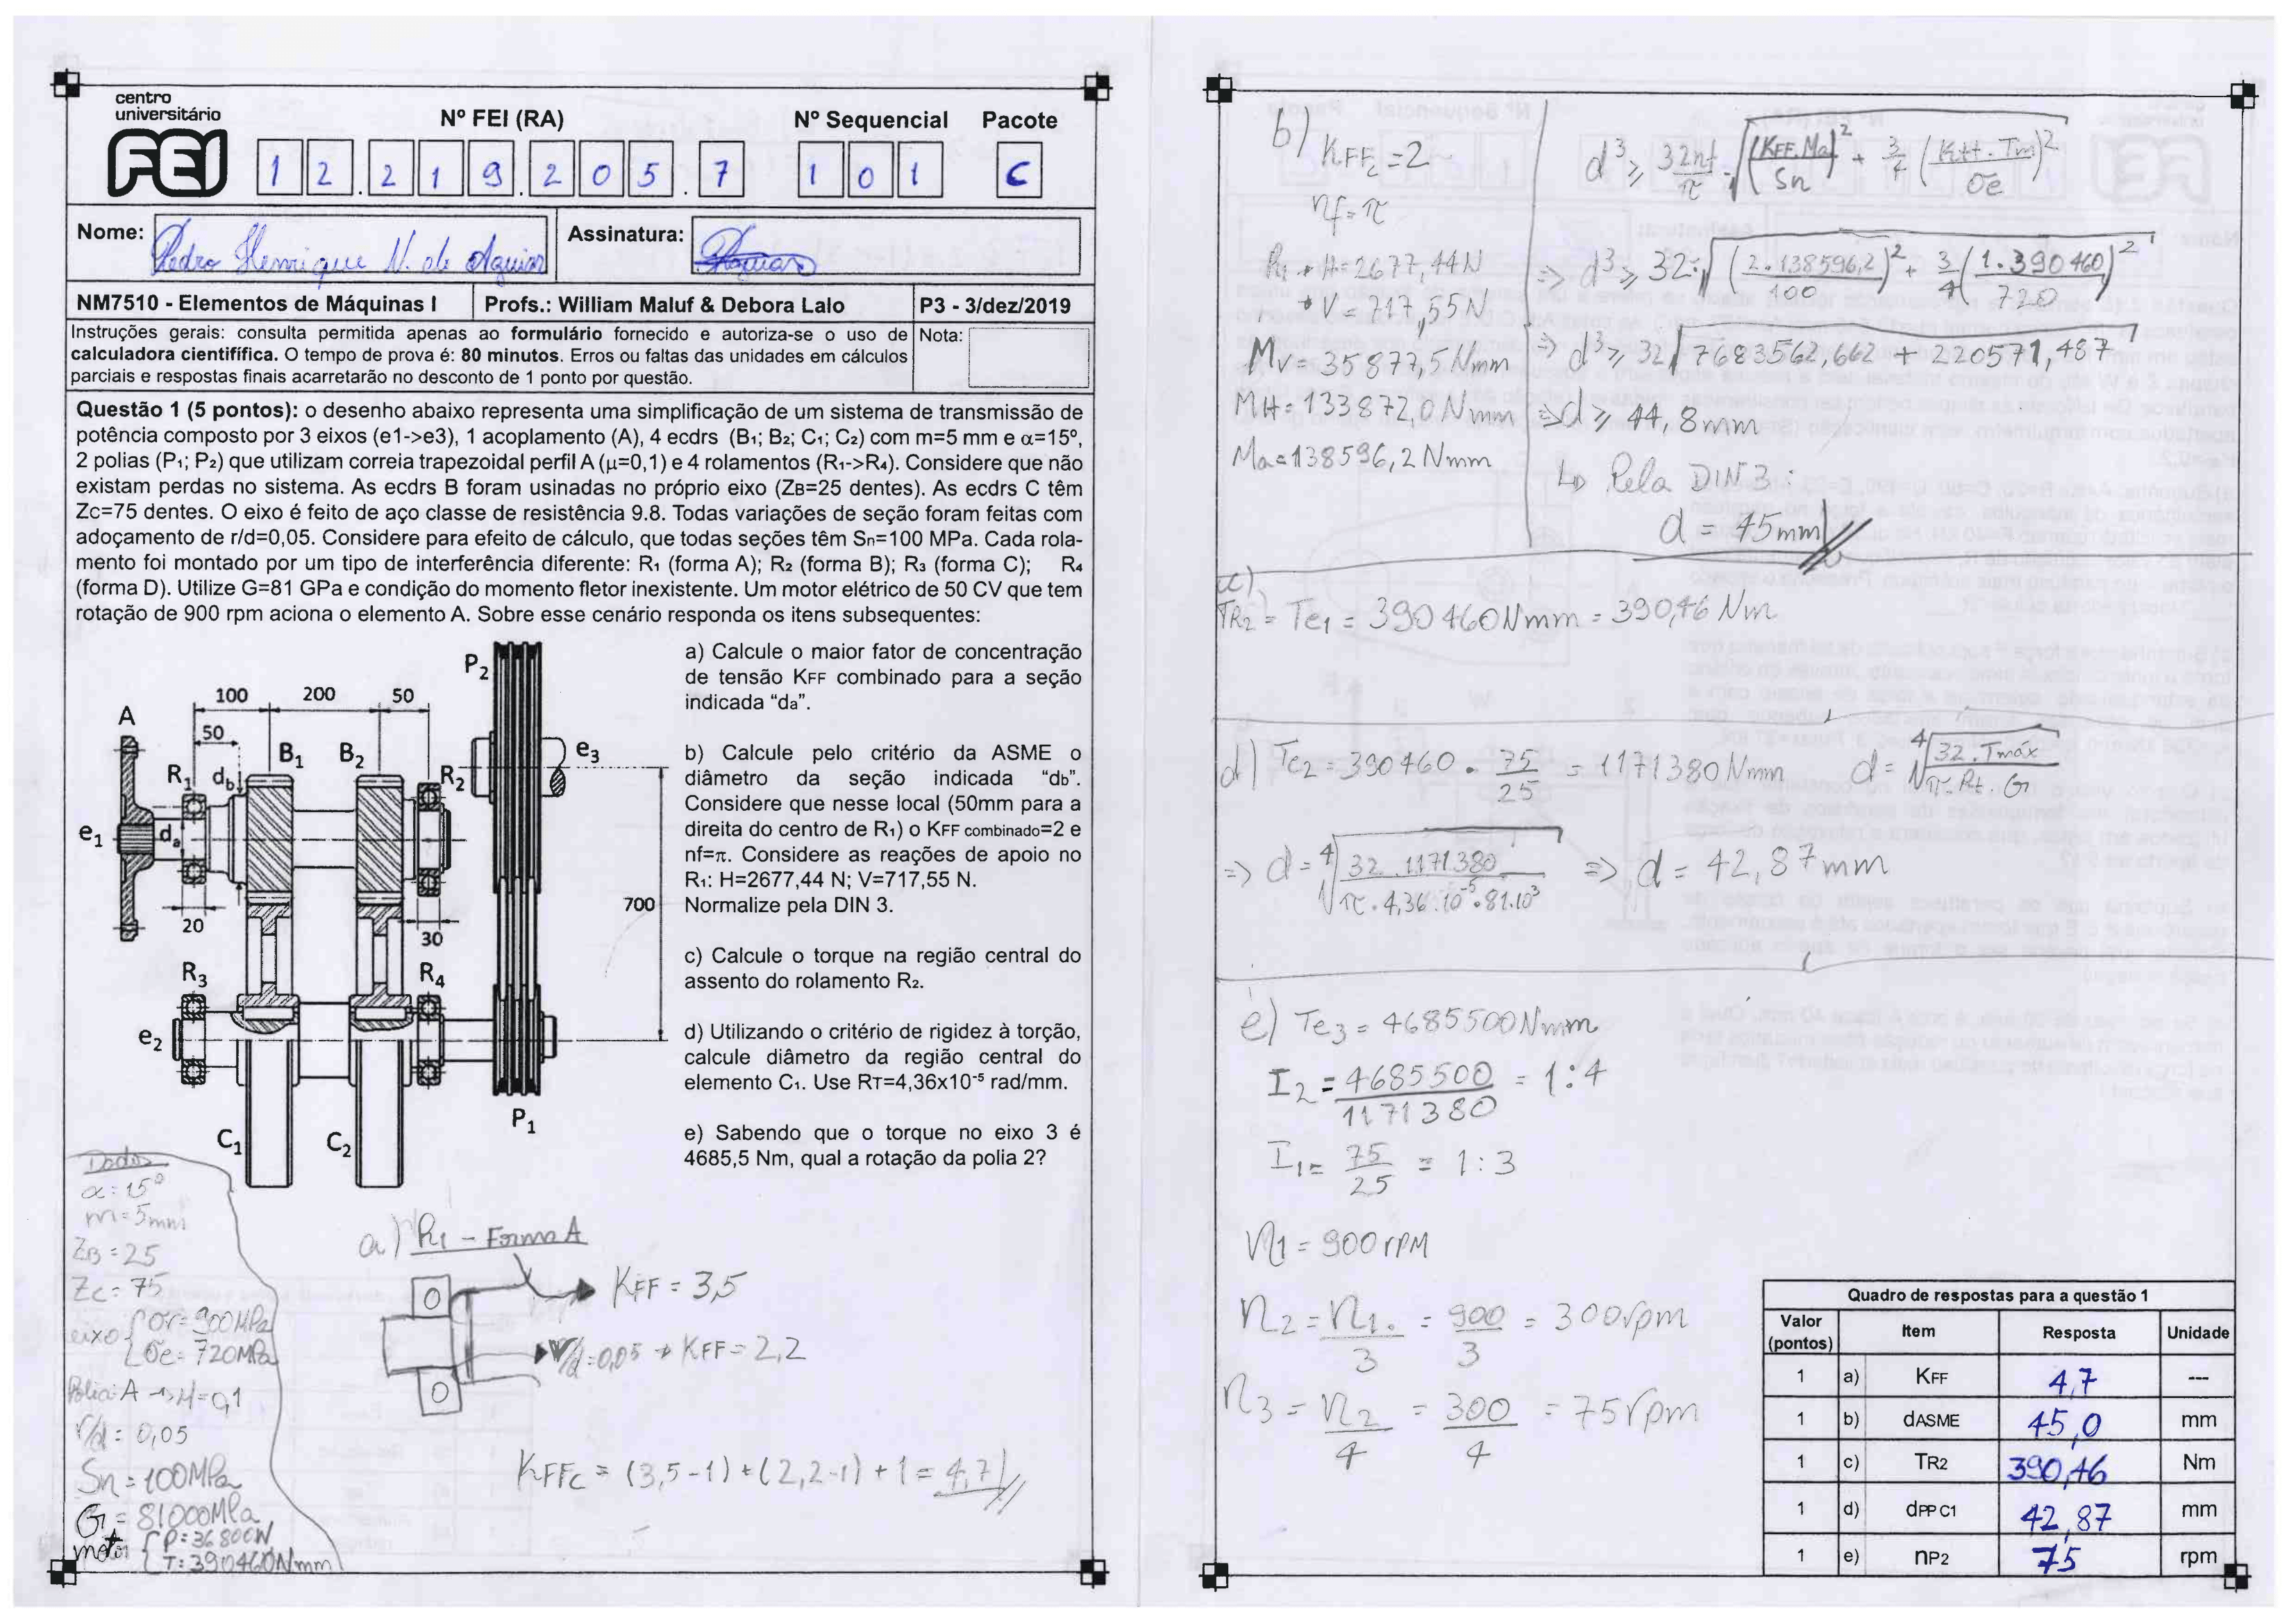 centro
universitário
FEI
Nº FEI (RA)
Nº Sequencial
Pacote
1 2 . 2 1 9 . 2 0 5 . 7
1 0 1
C
Nome: Pedro Henrique N. de Aguiar
Assinatura:
NM7510 - Elementos de Máquinas I
Profs.: William Maluf & Debora Lalo
P3 - 3/dez/2019
Instruções gerais: consulta permitida apenas ao formulário fornecido e autoriza-se o uso de
calculadora cientifífica. O tempo de prova é: 80 minutos. Erros ou faltas das unidades em cálculos
parciais e respostas finais acarretarão no desconto de 1 ponto por questão.
Nota:
Questão 1 (5 pontos): o desenho abaixo representa uma simplificação de um sistema de transmissão de
potência composto por 3 eixos (e1->e3), 1 acoplamento (A), 4 ecdrs (B₁; B₂; C₁; C₂) com m=5 mm e α=15º,
2 polias (P₁; P₂) que utilizam correia trapezoidal perfil A (μ=0,1) e 4 rolamentos (R₁->R₄). Considere que não
existam perdas no sistema. As ecdrs B foram usinadas no próprio eixo (ZB=25 dentes). As ecdrs C têm
Zc=75 dentes. O eixo é feito de aço classe de resistência 9.8. Todas variações de seção foram feitas com
adoçamento de r/d=0,05. Considere para efeito de cálculo, que todas seções têm Sn=100 MPa. Cada rola-
mento foi montado por um tipo de interferência diferente: R₁ (forma A); R₂ (forma B); R₃ (forma C); R₄
(forma D). Utilize G=81 GPa e condição do momento fletor inexistente. Um motor elétrico de 50 CV que tem
rotação de 900 rpm aciona o elemento A. Sobre esse cenário responda os itens subsequentes:
P₂
100
200
50
A
50
B₁
B₂
e₃
R₁
db
R₂
e₁
da
700
20
30
R₃
R₄
e₂
C₁
C₂
P₁
a) Calcule o maior fator de concentração
de tensão KFF combinado para a seção
indicada “da”.
b) Calcule pelo critério da ASME o
diâmetro da seção indicada “db”.
Considere que nesse local (50mm para a
direita do centro de R₁) o KFF combinado=2 e
nf=π. Considere as reações de apoio no
R₁: H=2677,44 N; V=717,55 N.
Normalize pela DIN 3.
c) Calcule o torque na região central do
assento do rolamento R₂.
d) Utilizando o critério de rigidez à torção,
calcule diâmetro da região central do
elemento C₁. Use RT=4,36x10⁻⁵ rad/mm.
e) Sabendo que o torque no eixo 3 é
4685,5 Nm, qual a rotação da polia 2?
Dados
α: 15º
m=5mm
ZB=25
Zc=75
eixo { σr=900MPa
σe=720MPa
Polia: A → μ=0,1
r/d=0,05
Sn=100MPa
G=81000MPa
motor { P: 36800W
T: 390460Nmm
a) R₁ - Forma A
KFF = 3,5
r/d=0,05 → KFF=2,2
KFFc = (3,5-1)+(2,2-1)+1= 4,7
b) KFF₂=2
nf=π
R₁ → H=2677,44N
→ V=717,55N
Mv=35877,5Nmm
MH=133872,0Nmm
Ma=138596,2Nmm
d³ ≥ 32nf/π · √((KFF.Ma/Sn)² + 3/4 (Ktt.Tm/σe)²)
=> d³ ≥ 32·√((2.138596,2/100)² + 3/4 (1.390460/720)²)
=> d³ ≥ 32√(7683562,662 + 220571,487)
=> d ≥ 44,8mm
↳ Pela DIN 3:
d = 45mm
c)
TR₂ = Te₁ = 390460Nmm = 390,46 Nm
d) Te₂ = 390460 · 75/25 = 1171380Nmm d = ⁴√(32.Tmáx/π.Rt.G)
=> d = ⁴√(32.1171380/π.4,36.10⁻⁵.81.10³) => d = 42,87mm
e) Te₃ = 4685500Nmm
I₂ = 4685500/1171380 = 1:4
I₁ = 75/25 = 1:3
n₁ = 900rpm
n₂ = n₁/3 = 900/3 = 300rpm
n₃ = n₂/4 = 300/4 = 75rpm
Quadro de respostas para a questão 1
Valor (pontos) Item Resposta Unidade
1 a) KFF 4,7 ---
1 b) dASME 45,0 mm
1 c) TR2 390,46 Nm
1 d) dPP C1 42,87 mm
1 e) nP2 75 rpm